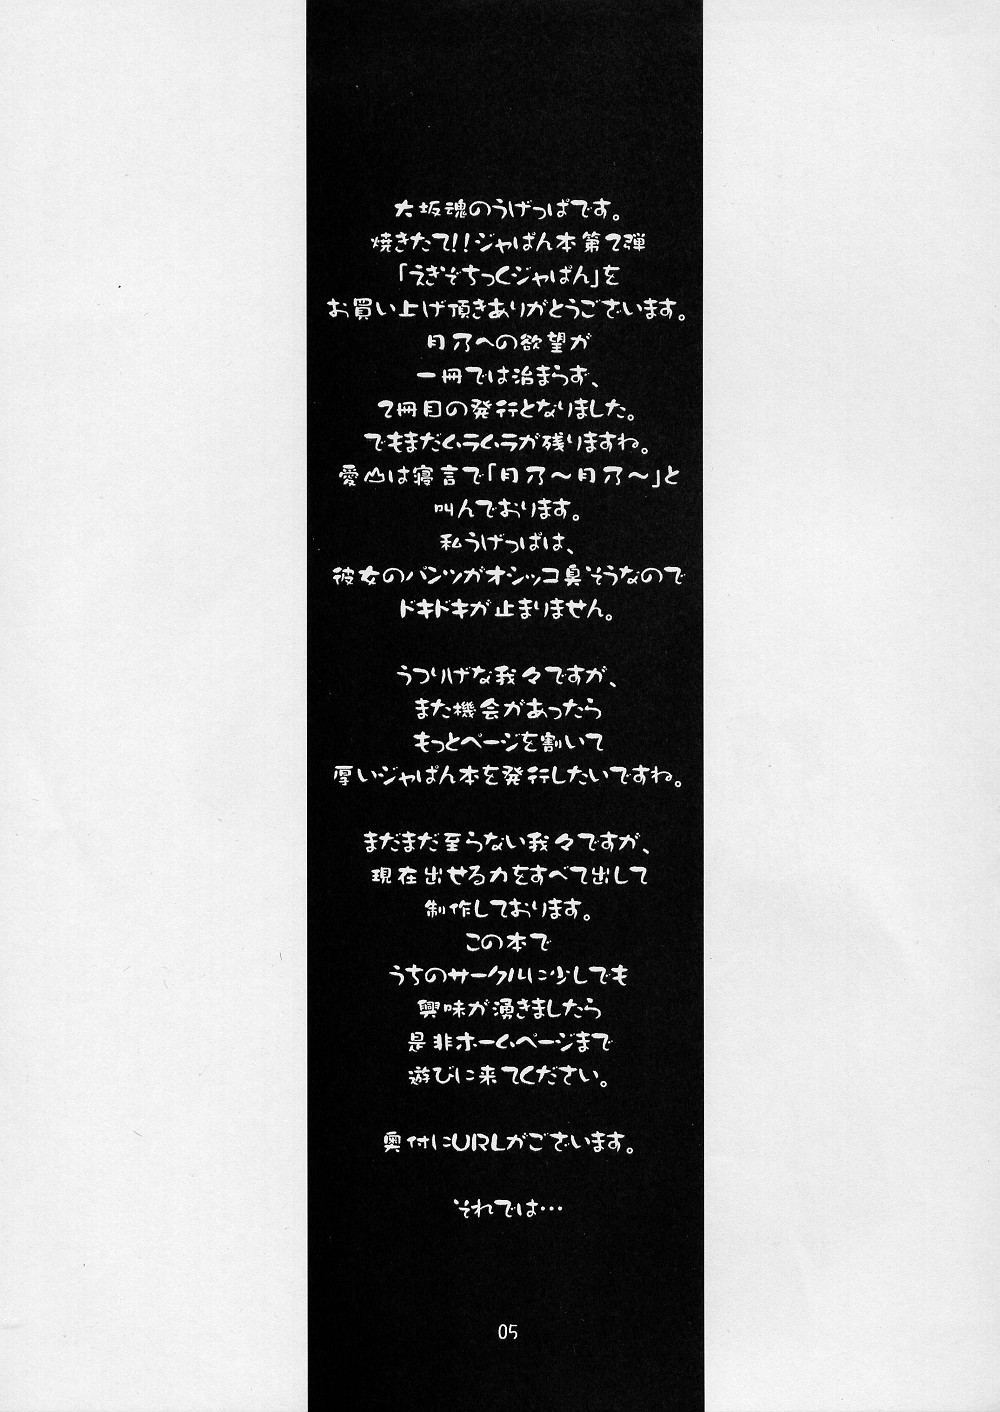 大坂魂のうげっぱです。
焼きたて!!ジャぱん本第2弾
「えきぞちっくジャぱん」を
お買い上げ頂きありがとうございます。
月乃への欲望が
一冊では治まらず、
2冊目の発行となりました。
でもまだムラムラが残りますね。
愛山は寝言で「月乃～月乃～」と
叫んでおります。
私うげっぱは、
彼女のパンツがオシッコ臭そうなので
ドキドキが止まりません。

うつりげな我々ですが、
また機会があったら
もっとページを割いて
厚いジャぱん本を発行したいですね。

まだまだ至らない我々ですが、
現在出せる力をすべて出して
制作しております。
この本で
うちのサークルに少しでも
興味が湧きましたら
是非ホームページまで
遊びに来てください。

奥付にURLがございます。

それでは…

05